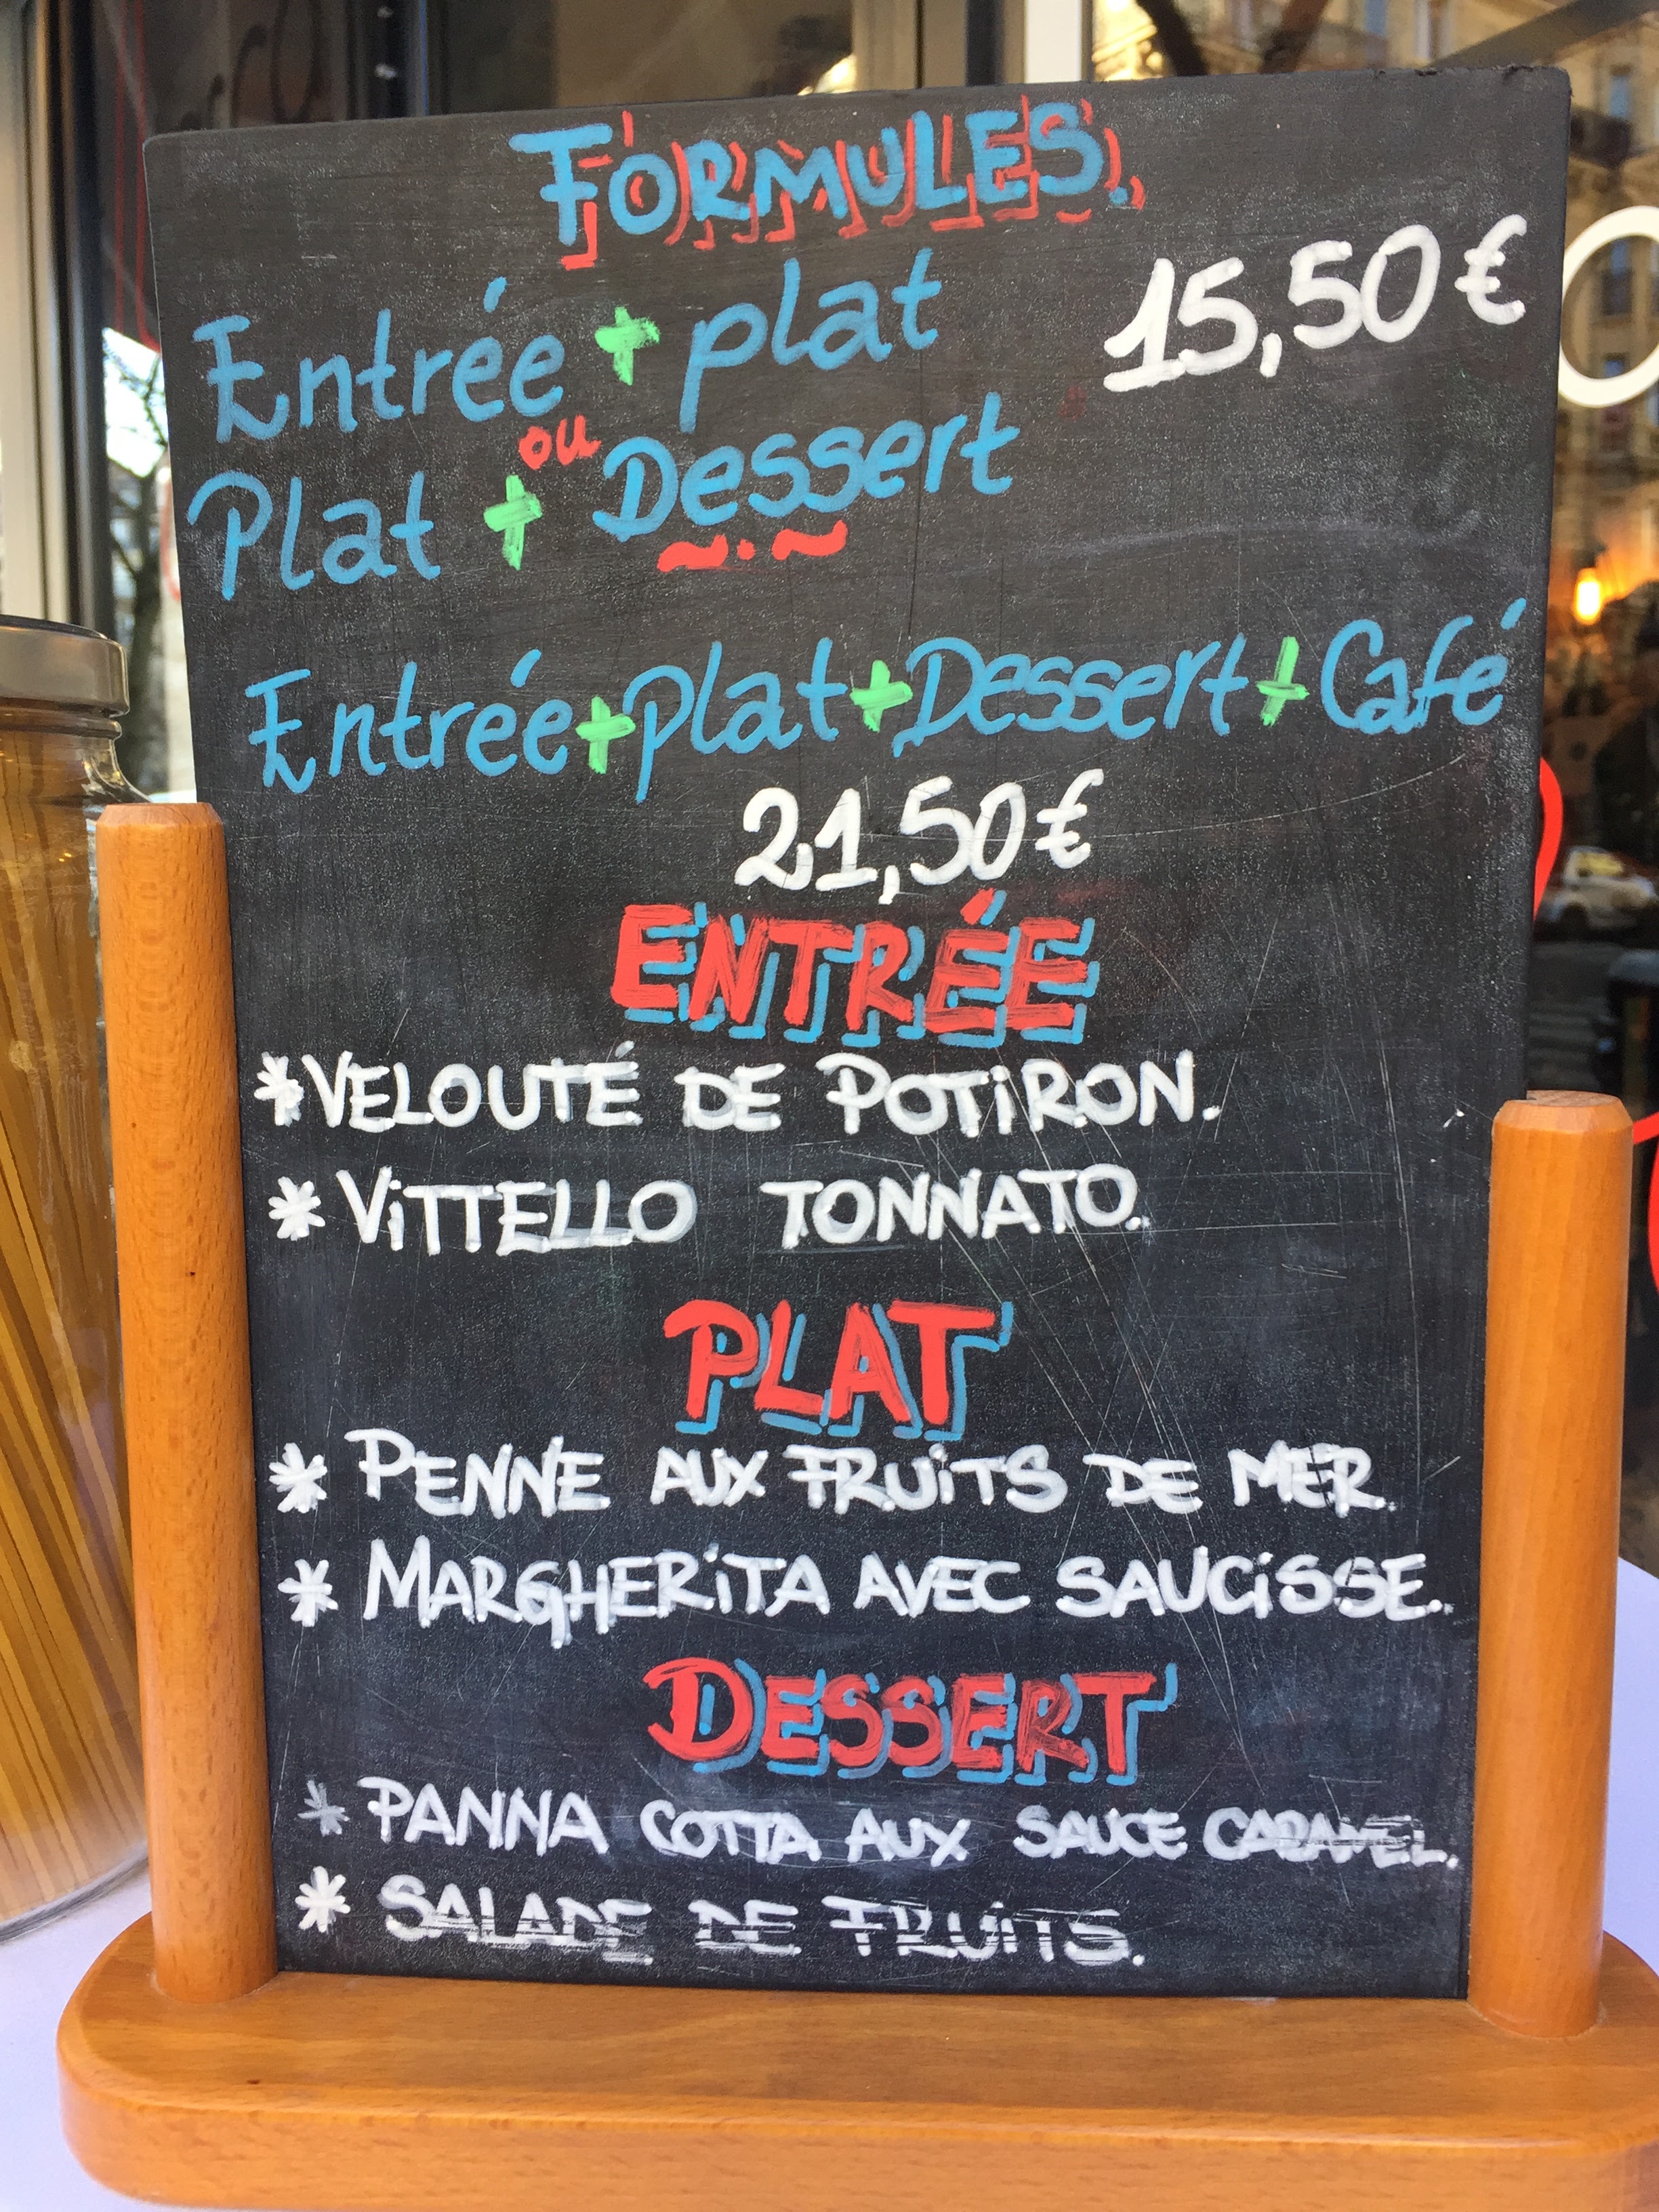 FORMULES.
Entrée + plat 15,50 €
ou
Plat + Dessert
Entrée + plat + Dessert + Café
21,50 €
ENTRÉE
* VELOUTÉ DE POTIRON.
* VITTELLO TONNATO.
PLAT
* PENNE AUX FRUITS DE MER.
* MARGHERITA AVEC SAUCISSE.
DESSERT
* PANNA COTTA AUX SAUCE CARAMEL.
* SALADE DE FRUITS.